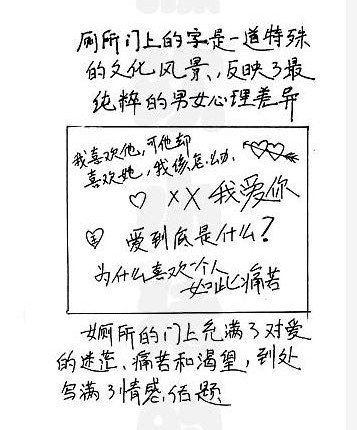 厕所门上的字是一道特殊
的文化风景、反映了最
纯粹的男女心理差异
我喜欢他,可他却
喜欢她,我该怎么办.
♡ XX 我爱你
爱到底是什么?
为什么喜欢一个人
如此痛苦
女厕所的门上充满了对爱
的迷茫、痛苦和渴望,到处
写满了情感话题